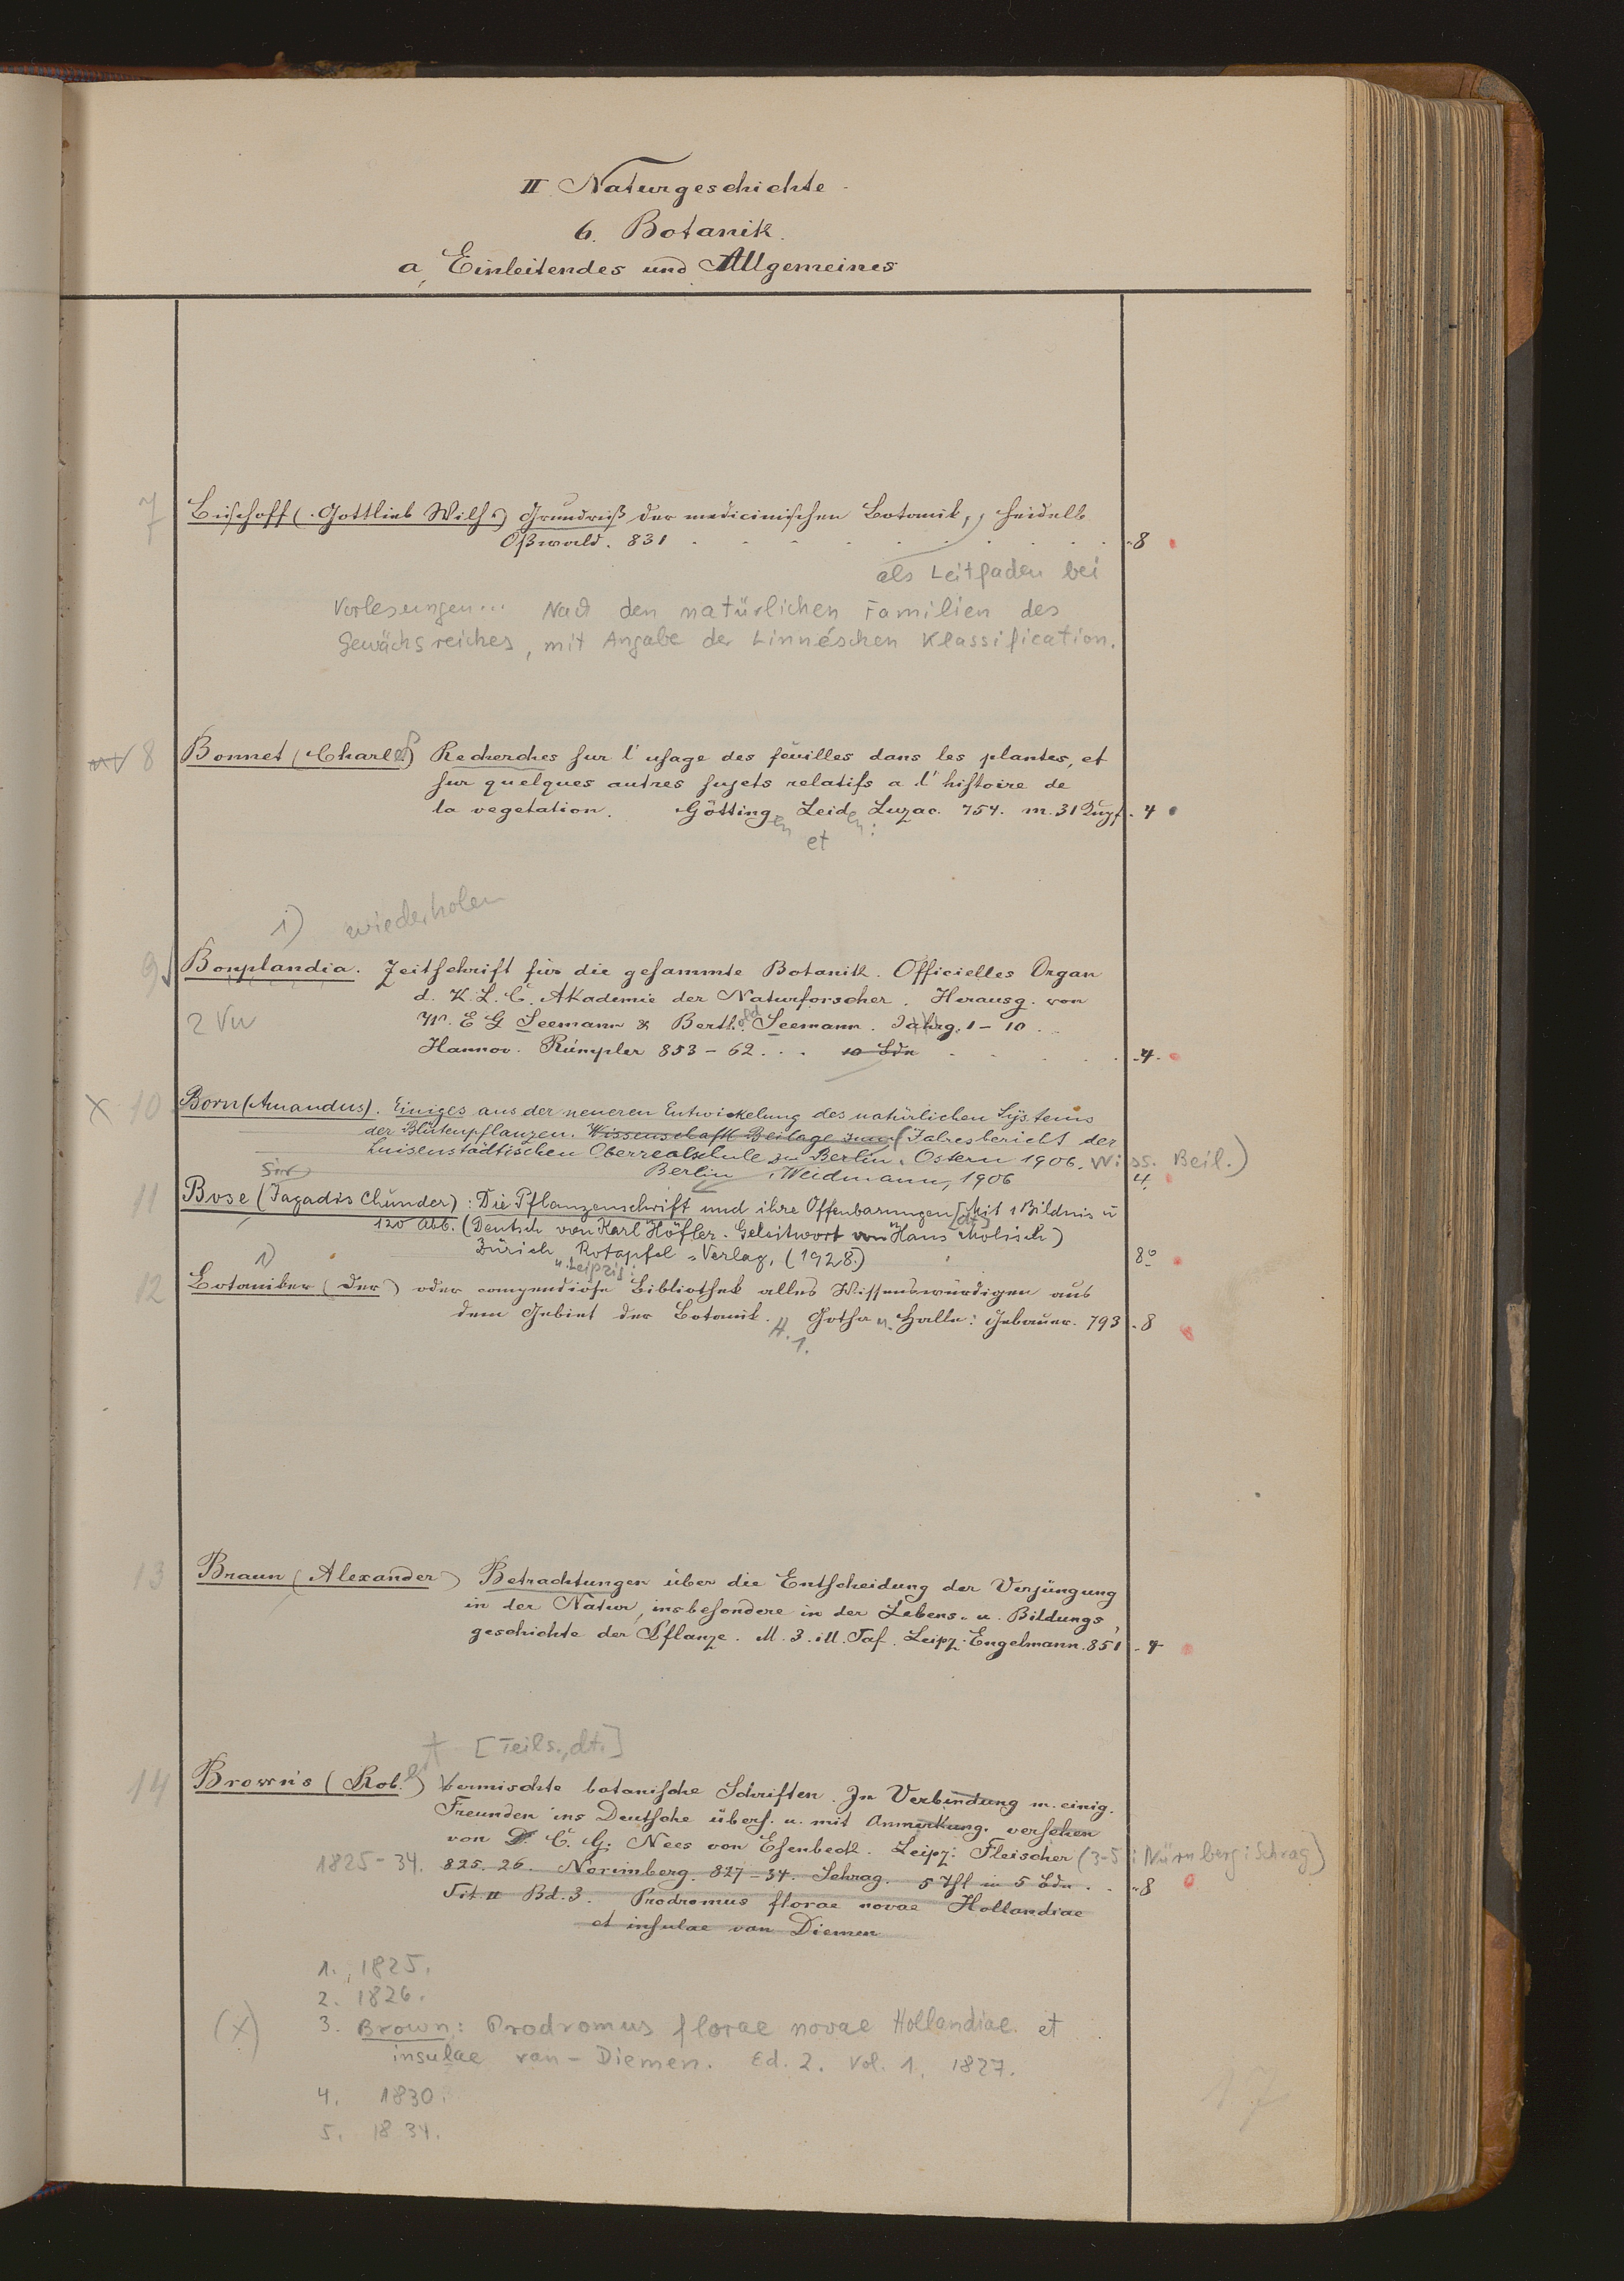 II. Naturgeschichte.
6. Botanik.
a, Einleitendes und Allgemeines
7 Bischoff (Gottlieb Wilh.) Grundriß der medicinischen Botanik, Heidelb
Oßwald. 831 8
als Leitfaden bei
Vorlesungen... Nach den natürlichen Familien des
Gewächsreiches, mit Angabe der Linnéschen Klassification.
8 Bonnet (Charles) Recherches sur l'usage des feuilles dans les plantes, et
sur quelques autres sujets relatifs a l'histoire de
la vegetation. Göttingen Leiden: Luzac. 754. m. 31 Kupf. 4
et
1) wiederholen
9 Bonplandia. Zeitschrift für die gesammte Botanik. Officielles Organ
d. K. L. C. Akademie der Naturforscher. Herausg. von
2 Vw W. E G Seemann & Berthold Seemann. Jahrg. 1-10.
Hannov. Rümpler 853-62. . . 10 Bdn 4.
X 10 Born (Amandus). Einiges aus der neueren Entwickelung des natürlichen Systems
der Blütenpflanzen. Wissenschaftl. Beilage zum (Jahresbericht der
Luisenstädtischen Oberrealschule zu Berlin. Ostern 1906. Wiss. Beil.)
Berlin, Weidmann, 1906 4.
Sir
11 Bose (Jagadis Chunder): Die Pflanzenschrift und ihre Offenbarungen [dt.] Mit 1 Bildnis u
120 Abb. (Deutsch von Karl Höfler. Geleitwort von Hans Molisch)
Zürich, Rotapfel-Verlag, (1928.) 8°
u. Leipzig:
1)
12 Botaniker (Der) oder compendiöse Bibliothek alles Wissenswürdigen aus
dem Gebiet der Botanik. Gotha u. Halle: Gebauer. 793 8
H. 1.
13 Braun (Alexander) Betrachtungen über die Entscheidung der Verjüngung
in der Natur, insbesondere in der Lebens- u. Bildungs,
geschichte der Pflanze. M. 3. ill. Taf. Leipz. Engelmann. 851 4
[Teils., dt.]
14 Brown's (Rob.) Vermischte botanische Schriften. In Verbindung m. einig.
Freunden ins Deutsche übers. u. mit Anmerkung. versehen
von D. C. G. Nees von Esenbeck. Leipz: Fleischer (3-5: Nürnberg: Schrag)
1825-34. 825. 26. Norimberg. 827-34. Schrag. 5 Thl in 5 Bdn. 8
Tit II Bd. 3. Prodromus florae novae Hollandiae
et insulae van Diemen
1. 1825.
2. 1826.
(X) 3. Brown: Prodromus florae novae Hollandiae et
insulae van-Diemen. Ed. 2. Vol. 1. 1827.
4. 1830.
5. 1834.
17